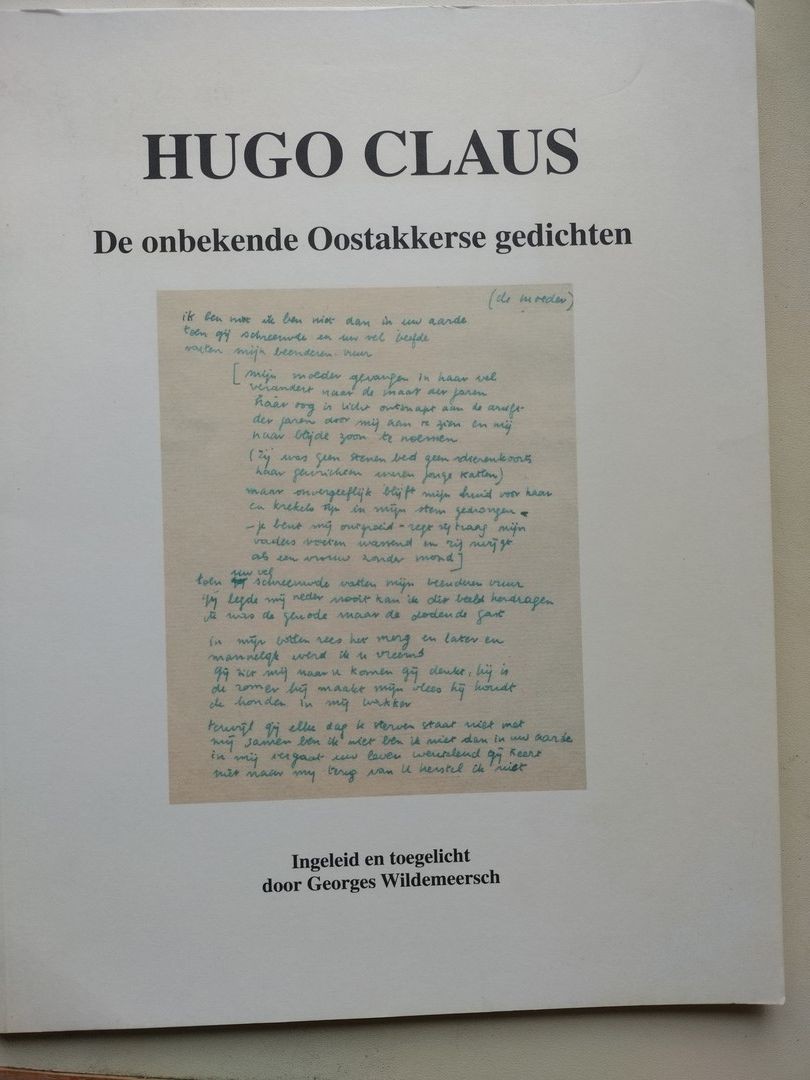 HUGO CLAUS
De onbekende Oostakkerse gedichten
(de moeder)
ik ben niet ik ben niet dan in uw aarde
toen gij schreeuwde en uw vel beefde
vatten mijn beenderen vuur
[mijn moeder gevangen in haar vel
verandert naar de maat der jaren
haar oog is licht ontsnapt aan de drift
der jaren door mij aan te zien en mij
haar blijde zoon te noemen
(Zij was geen stenen bed geen dierenkoorts
haar gewrichten waren jonge katten)
maar onvergeeflijk blijft mijn huid voor haar
en krekels zijn in mijn stem gedrongen
- je bent mij ontgroeid - zegt zij traag mijn
vaders voeten wassend en zij zwijgt
als een vrouw zonder mond]
uw vel
toen schreeuwde vatten mijn beenderen vuur
gij legde mij neder nooit kan ik dit beeld herdragen
ik was de genode maar de dodende gast
in mijn botten rees het merg en later en
mannelijk werd ik u vreemd
gij ziet mij naar u komen gij denkt: hij is
de zomer hij maakt mijn vlees hij houdt
de honden in mij wakker
terwijl gij elke dag te sterven staat niet met
mij samen ben ik niet ben ik niet dan in uw aarde
in mij vergaat uw leven wentelend gij keert
niet naar mij terug van u herstel ik niet
Ingeleid en toegelicht
door Georges Wildemeersch